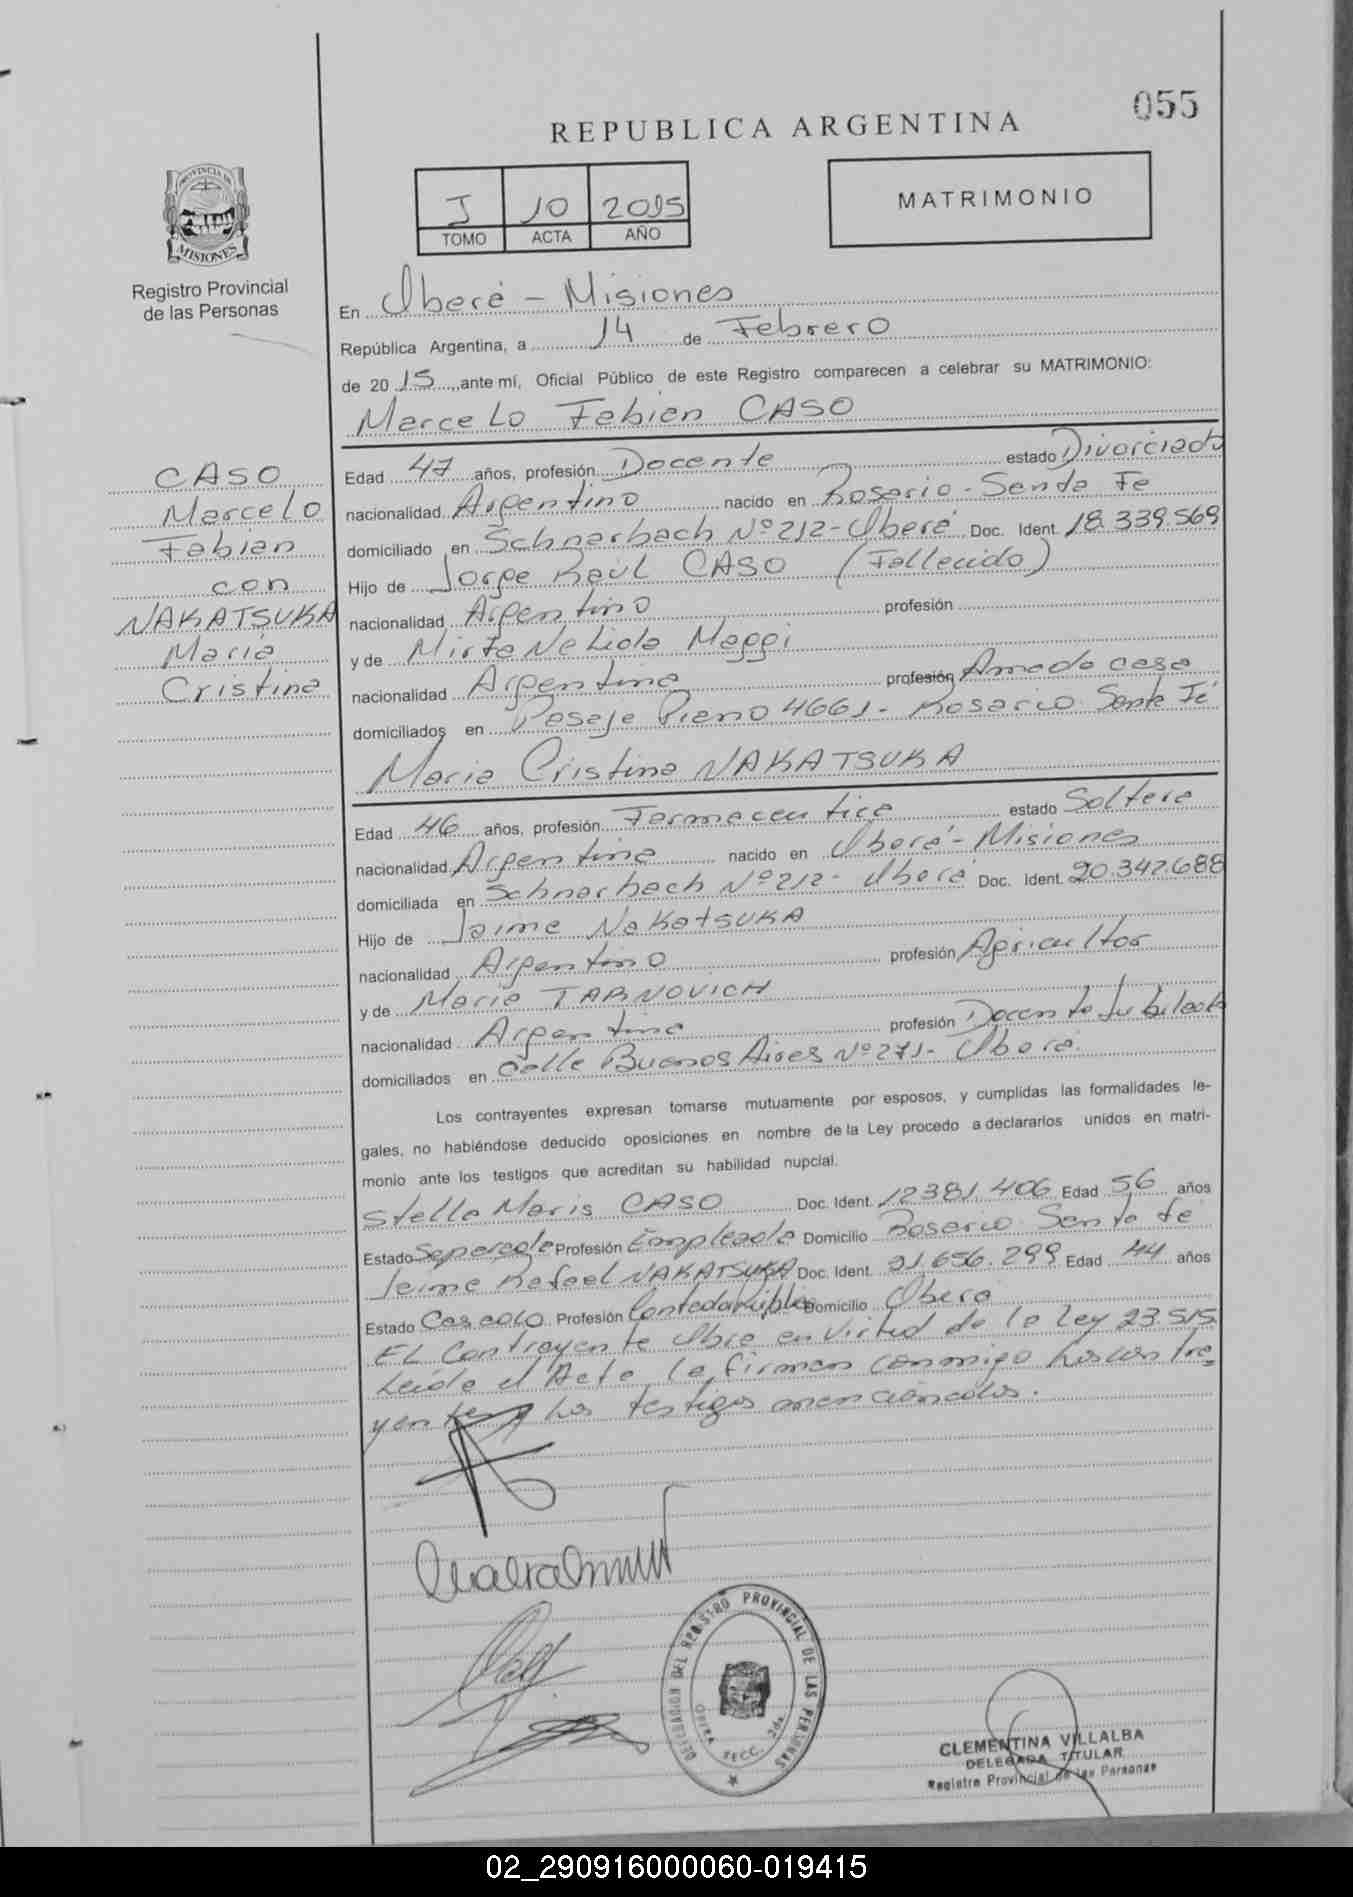 055
REPUBLICA ARGENTINA
PROVINCIA DE
MISIONES
Registro Provincial
de las Personas
I 10 2015
TOMO ACTA AÑO
MATRIMONIO
En Oberá - Misiones
República Argentina, a 14 de Febrero
de 20 15, ante mí, Oficial Público de este Registro comparecen a celebrar su MATRIMONIO:
Marcelo Fabian CASO
CASO
Marcelo
Fabian
con
NAKATSUKA
Maria
Cristina
Edad 47 años, profesión Docente estado Divorciado
nacionalidad Argentino nacido en Rosario - Santa Fe
domiciliado en Schnarbach Nº 212 - Oberá Doc. Ident. 18.339.569
Hijo de Jorge Raúl CASO (Fallecido)
nacionalidad Argentino profesión
y de Mirta Nelida Maggi
nacionalidad Argentina profesión Ama de casa
domiciliados en Pasaje Pieno 4661 - Rosario Santa Fé
Maria Cristina NAKATSUKA
Edad 46 años, profesión Farmaceutica estado Soltera
nacionalidad Argentina nacido en Oberá - Misiones
domiciliada en Schnarbach Nº 212 - Oberá Doc. Ident. 20.342.688
Hijo de Jaime NakatsuKA
nacionalidad Argentino profesión Agricultor
y de Maria TARNOVICH
nacionalidad Argentina profesión Docente Jubilada
domiciliados en Calle Buenos Aires Nº 271 - Oberá.
Los contrayentes expresan tomarse mutuamente por esposos, y cumplidas las formalidades le-
gales, no habiéndose deducido oposiciones en nombre de la Ley procedo a declararlos unidos en matri-
monio ante los testigos que acreditan su habilidad nupcial.
Stella Maris CASO Doc. Ident. 12381.406 Edad 56 años
Estado Separada Profesión Empleada Domicilio Rosario Santa Fé
Jaime Rafael NAKATSUKA Doc. Ident. 21.656.299 Edad 44 años
Estado Casado Profesión Domicilio Oberá
EL Contrayente Obra en Virtud de la Ley 23.515
Leída el Acta, la firman conmigo Los contra-
yentes y los testigos mencionados.
DELEGACION DEL REGISTRO PROVINCIAL DE LAS PERSONAS
OBERA SECC. 2da.
CLEMENTINA VILLALBA
DELEGADA TITULAR
Registro Provincial de las Personas
02_290916000060-019415